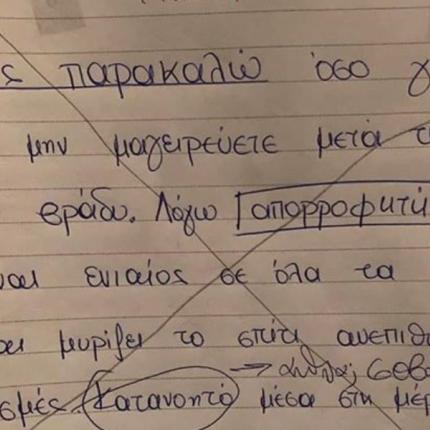 ς παρακαλώ όσο γ
μην μαγειρεύετε μετά τ
βράδυ. Λόγω απορροφητή
ναι ενιαίος σε όλα τα
αι μυρίζει το σπίτι ανεπιθ
→ σεβα
σμές. Κατανοητό μέσα στη μέρ